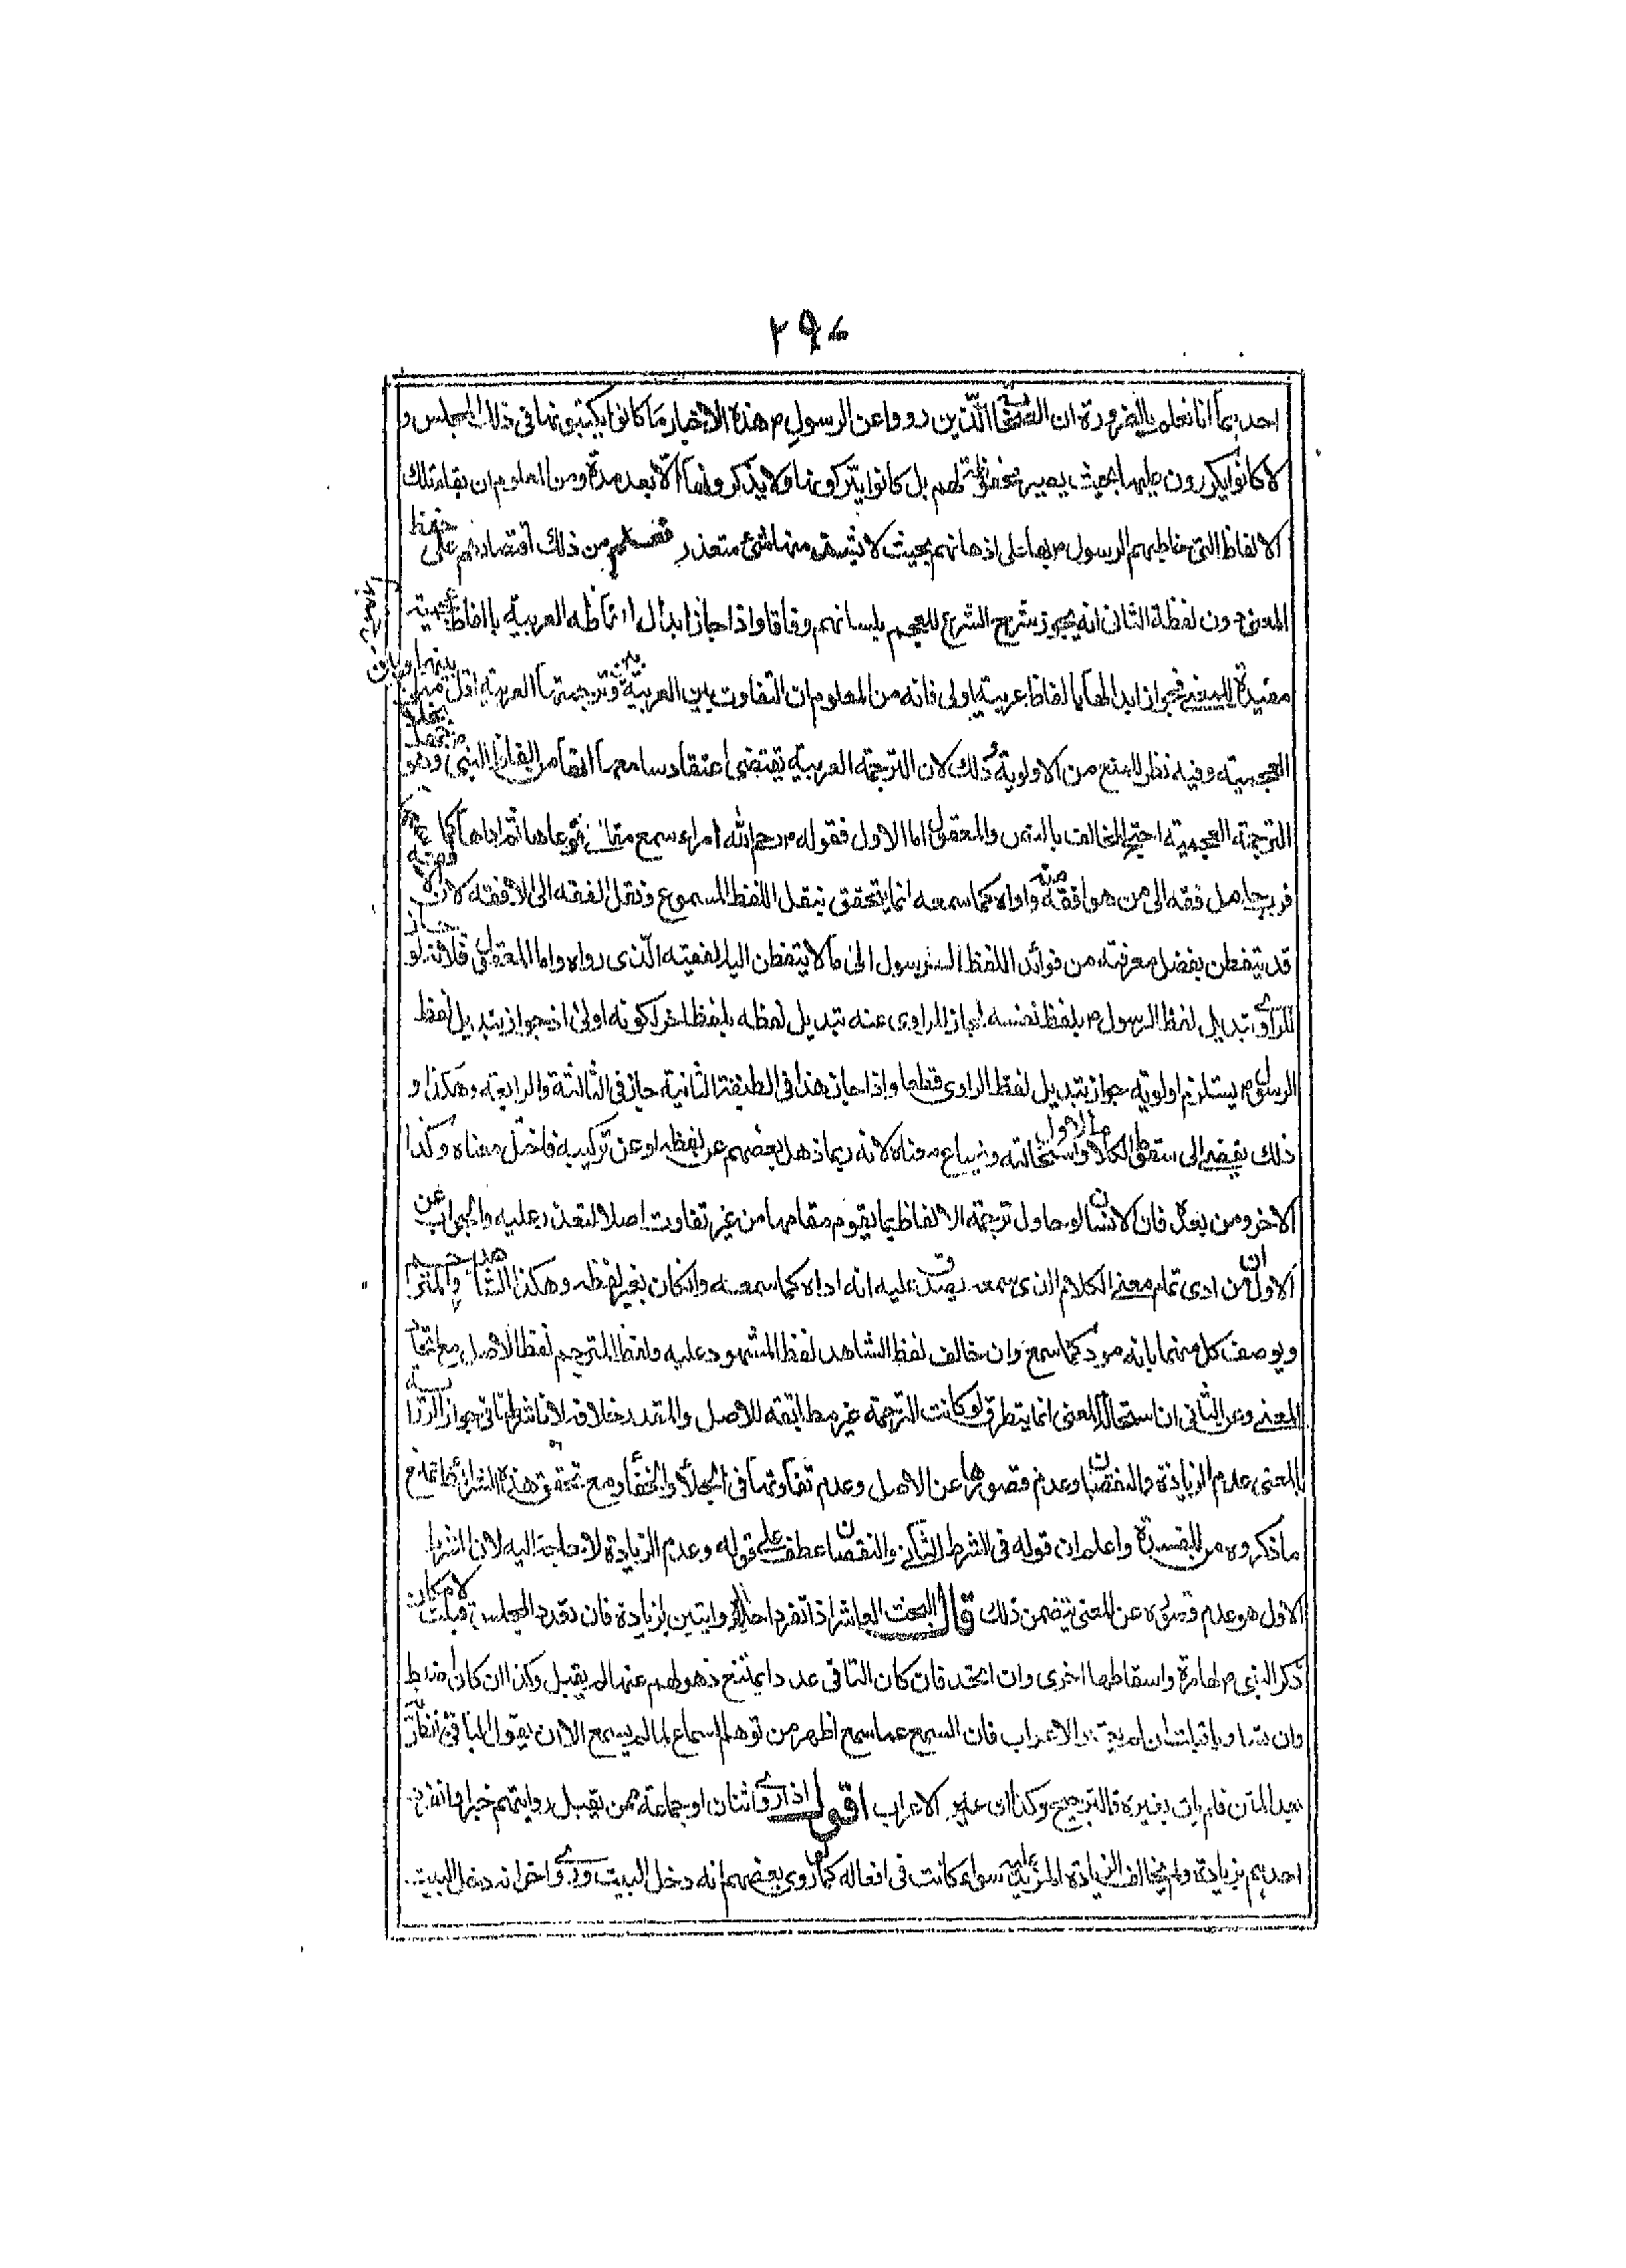 ٢٩٠
احدهما انا نعلم بالضرورة ان الصحابة الّذين رووا عن الرسول م هذه الاخبار ما كانوا يكتبونها فى ذلك المجلس و
لا كانوا يكررون عليها بحيث يصير محفوظة لهم بل كانوا يتركونها ولا يذكرونها الّا بعد مدة ومن المعلوم ان بقاء تلك
الالفاظ التى خاطبهم الرسول م بها على اذهانهم بحيث لا منها شئ متعذر فعلم من ذلك اقتصارهم على حفظ
المعنى دون لفظه الثانى انه يجوز شرح الشرع للعجم بلسانهم وفاقا واذا جاز ابدال الفاظه العربية بالفاظ عجمية
مفيدة للمعنى فجواز ابدالها بالفاظ عربية اولى فانه من المعلوم ان التفاوت بين العربية وترجمتها العربية اقل مما بينها وبين
العجمية وفيه نظر للمنع من الاولوية وذلك لان الترجمة العربية يقتضى اعتقاد سامعها انها من الفاظ النبى م وهو
الترجمة العجمية احتج المخالف بالنص والمعقول اما الاول فقوله م رحم الله امرء سمع مقالتى فوعاها ثم اداها كما
فرب حامل فقه الى من هو افقه منه واداه كما سمعه انما يتحقق بنقل اللفظ المسموع ونقل الفقه الى الافقه لان الافقه
قد يتفطن بفضل معرفته من فوائد اللفظ الى ما لا يتفطن اليه الفقيه الّذى رواه واما المعقول فلانه لو جاز
للراوى تبديل لفظ الرسول م بلفظ نفسه لجاز للراوى عنه تبديل لفظه بلفظ اخر لكونه اولى اذ جواز تبديل لفظ
الرسول م يستلزم اولوية جواز تبديل لفظ الراوى قطعا واذا جاز هذا فى الطبقة الثانية جاز فى الثالثة والرابعة وهكذا و
ذلك يفضى الى سقوط الكلام الاول واستحالته وضياع معناه لانه ربما ذهل بعضهم عن لفظه او عن تركيبه فاختل معناه وكذا
الاخر ومن بعده فان الانسان لو حاول ترجمة الالفاظ بما يقوم مقامها من غير تفاوت اصلا لتعذر عليه والجواب عن
الاول ان من ادى تمام معنى الكلام الذى سمعه يصدق عليه انه اداه كما سمعه وان كان بغير لفظه وهكذا الشاهد والمترجم
ويوصف كل منهما بانه مود كما سمع وان خالف لفظ الشاهد لفظ المشهود عليه ولفظ المترجم لفظ الاصل مع
المعنى وعن الثانى ان استحالة المعنى انما يتطرق لو كانت الترجمة غير مطابقة للاصل والمقدر خلافه لانا شرطنا فى جواز الرواية
بالمعنى عدم الزيادة والنقصان وعدم قصورها عن الاصل وعدم تفاوتها فى الجلاء والخفاء ومع تحقق هذه الشرائط يمتنع
ما ذكروه من المفسدة واعلم ان قوله فى الشرط الثانى والنقصان عطف على قوله وعدم الزيادة لا حاجة اليه لان الشرط
الاول هو عدم قصوره عن المعنى يتضمن ذلك قال البحث العاشر اذا تفرد احد الروايتين بزيادة فان تعدد المجلس قبلت لامكان
ذكر النبى م لها مرة واسقاطها اخرى وان اتحد فان كان الباقى عددا يمتنع ذهولهم عنها لم يقبل وكذا ان كان اضبط
وان تساويا قبلت ان لم يغير الاعراب فان السمع عما سمع اظهر من توهم السماع لما لم يسمع الا ان يقول الباقى
فلم يات بغيره فالترجيح وكذا ان غير الاعراب اقول اذا روى اثنان او جماعة ممن يقبل روايتهم خبرا وانفرد
احدهم بزيادة ولم يخالف الزيادة المزيد عليه سواء كانت فى افعاله كما لو روى بعضهم انه دخل البيت وروى اخر انه دخل البيت